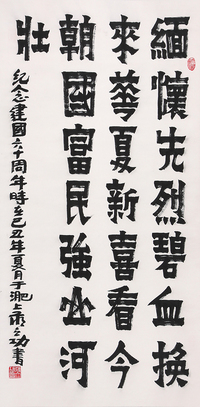 缅懷先烈碧血换
來華夏新喜看今
朝國富民強山河
壯
纪念建國六十周年時在己丑年夏月于淝上乘之功書